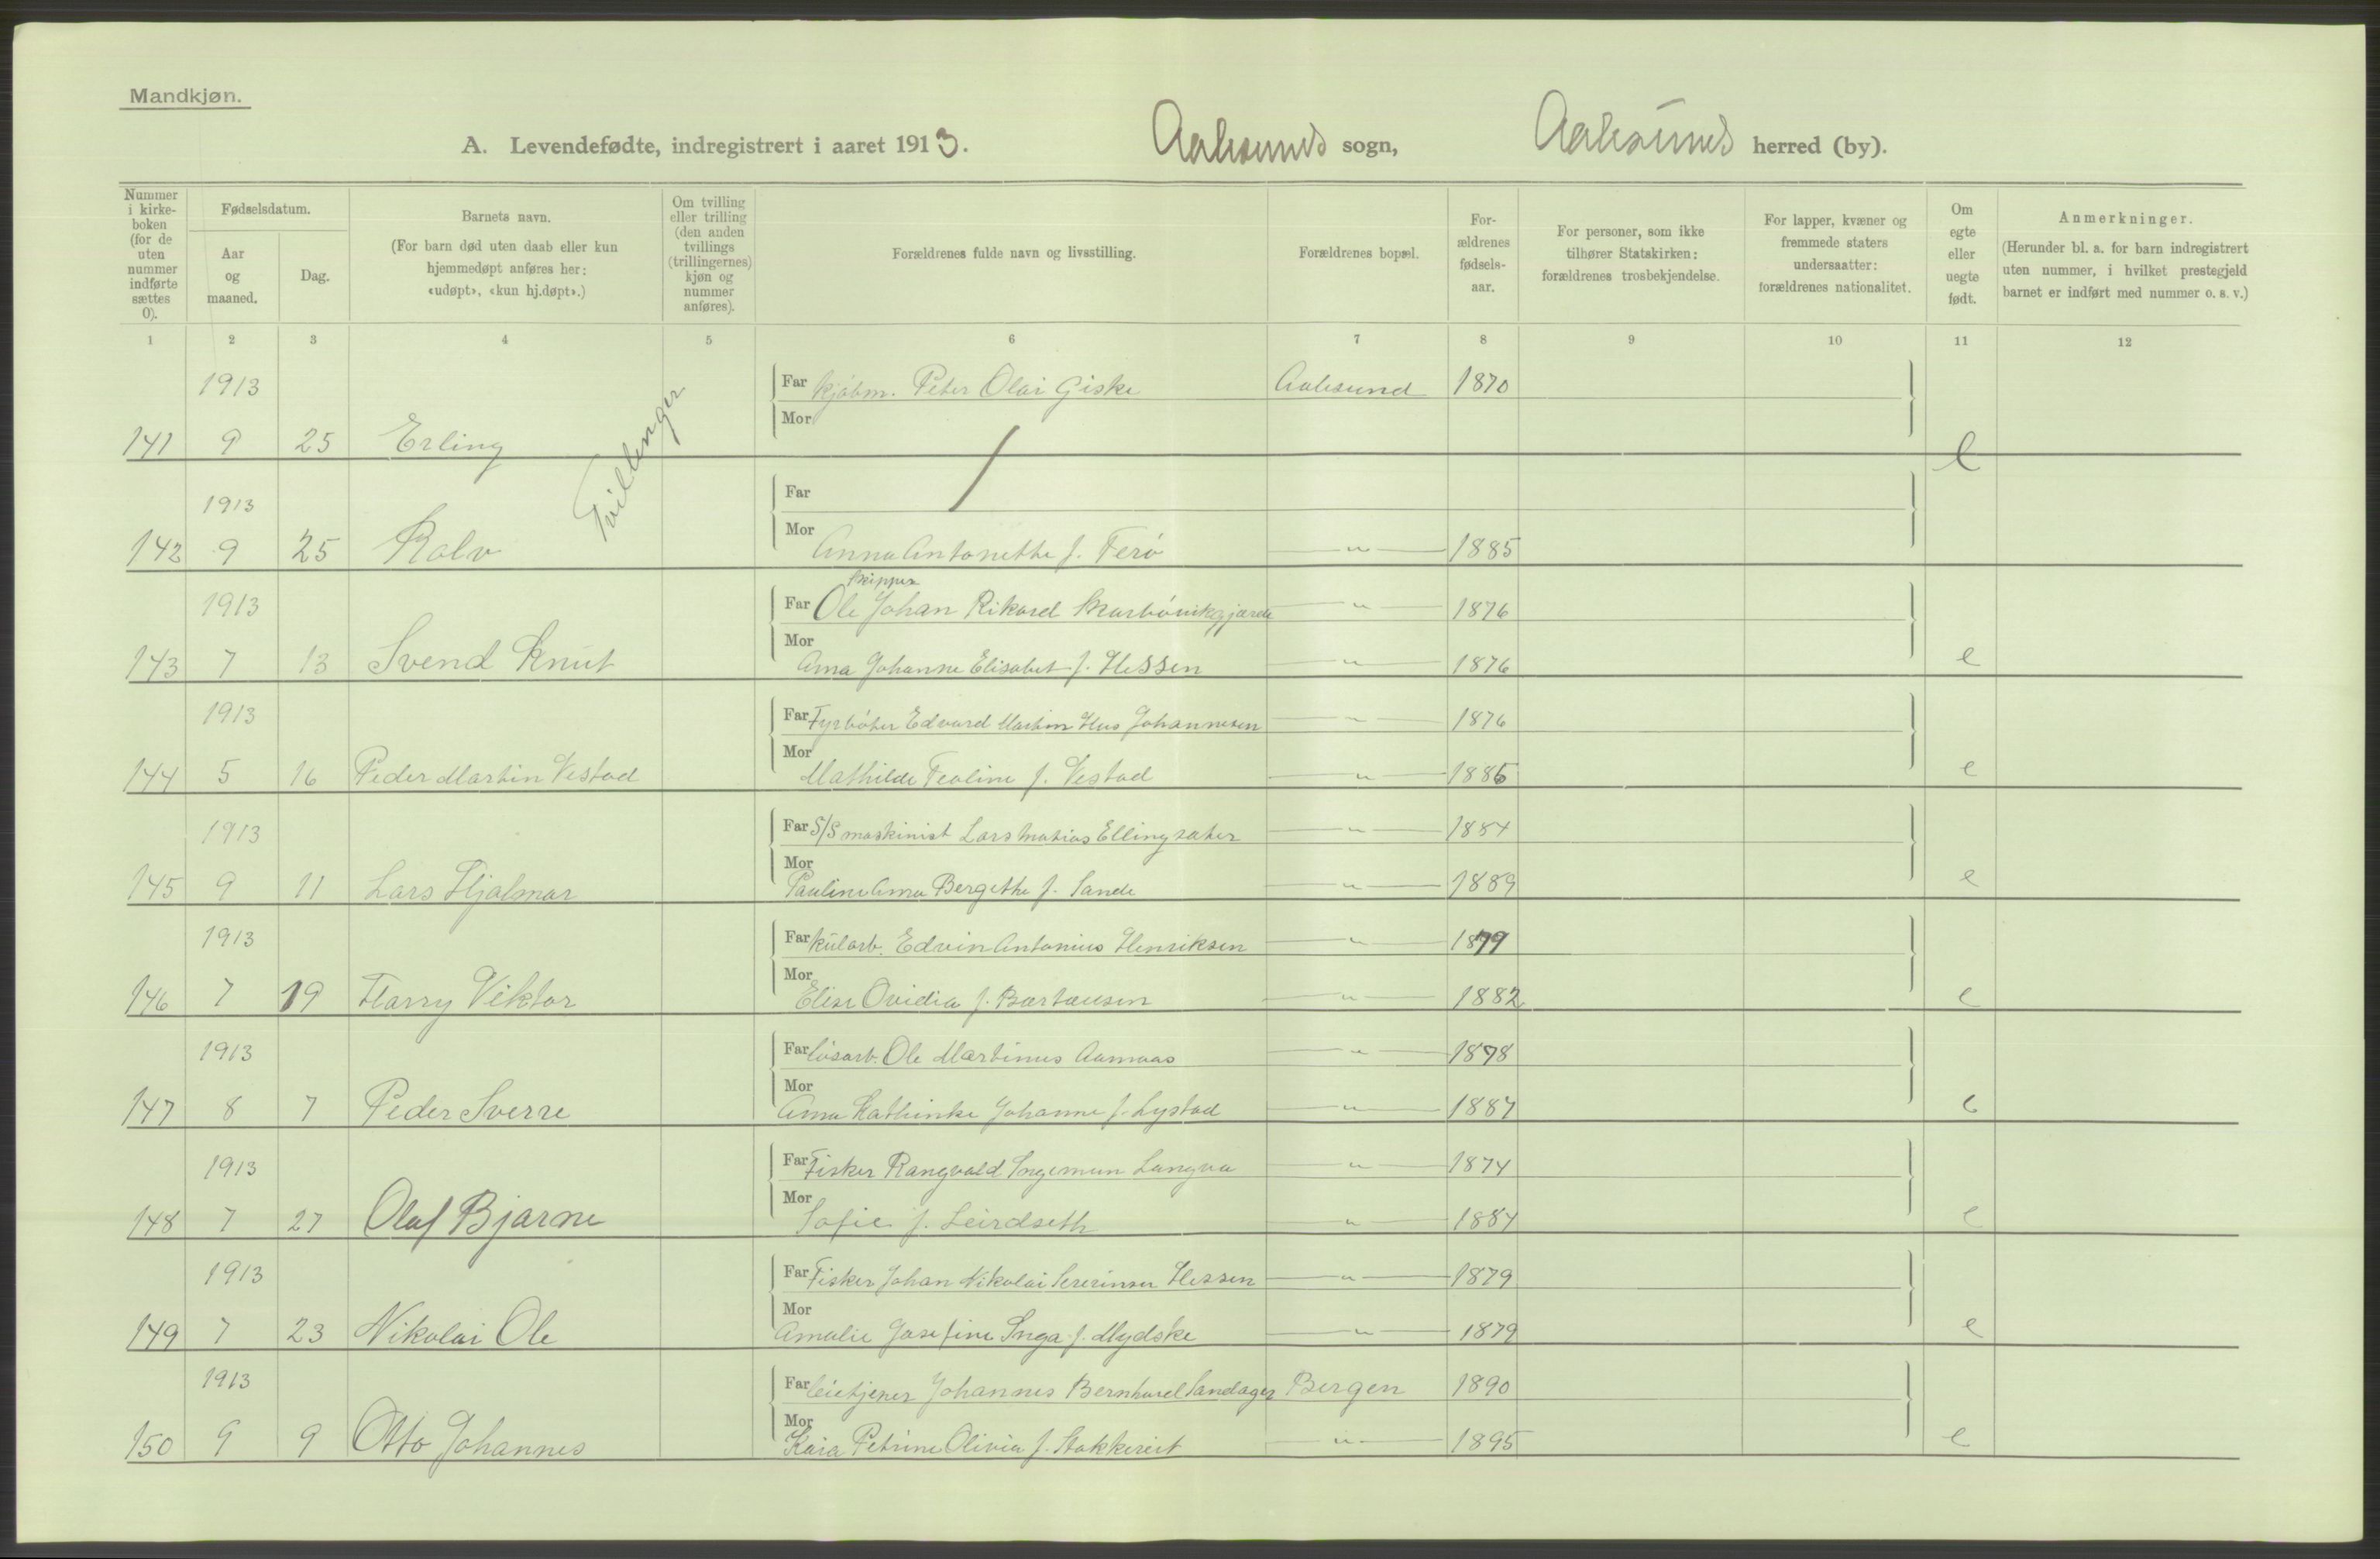 Mandkjøn.
A. Levendefødte, indregistrert i aaret 1913. Aalesunds sogn, Aalesunds herred (by).
Nummer i kirke-boken (for de uten nummer indførte sættes 0).
Fødselsdatum.
Aar og maaned.
Dag.
Barnets navn.
(For barn død uten daab eller kun hjemmedøpt anføres her: «udøpt», «kun hj.døpt».)
Om tvilling eller trilling (den anden tvillings (trillingernes) kjøn og nummer anføres).
Forældrenes fulde navn og livsstilling.
Forældrenes bopæl.
For-ældrenes fødsels-aar.
For personer, som ikke tilhører Statskirken: forældrenes trosbekjendelse.
For lapper, kvæner og fremmede staters undersaatter: forældrenes nationalitet.
Om egte eller uegte født.
Anmerkninger.
(Herunder bl. a. for barn indregistrert uten nummer, i hvilket prestegjeld barnet er indført med nummer o. s. v.)
1 2 3 4 5 6 7 8 9 10 11 12
1913 Far kjøbm. Peter Olai Giske Aalesund 1870
Mor
141 9 25 Erling e
Tvillinger
1913 Far
142 9 25 Rolv Mor Anna Antonette f. Ferø — " — 1885
skipper
1913 Far Ole Johan Rikard — " — 1876
143 7 13 Svend Knut Mor Anna Johanne Elisabet f. Hessen — " — 1876 e
1913 Far Fyrbøter Edvard Martin Hus Johannesen — " — 1876
144 5 16 Peder Martin Vestad Mor Mathilde Teoline f. Vestad — " — 1886 e
1913 Far S/S maskinist Lars Matias Ellingsæter — " — 1884
145 9 11 Lars Hjalmar Mor Pauline Anna Bergethe f. Sande — " — 1889 e
1913 Far kularb. Edvin Antonius Henriksen — " — 1879
146 7 19 Harry Viktor Mor Elise Ovidia f. — " — 1882 e
1913 Far løsarb. Ole Martinus Aamaas — " — 1878
147 8 7 Peder Sverre Mor Anna Kathinka Johanne f. Lystad — " — 1887 e
1913 Far Fisker Rangvald Ingemun Langva — " — 1874
148 7 27 Olaf Bjarne Mor Sofie f. Leirdseth — " — 1884 e
1913 Far Fisker Johan Nikolai Severinsen Hessen — " — 1879
149 7 23 Nikolai Ole Mor Amalie Josefine Inga f. Mydske — " — 1879 e
1913 Far Johannes Bernhard Sandager Bergen 1890
150 9 9 Otto Johannes Mor Kaia Petrine Olivia f. — " — 1895 e